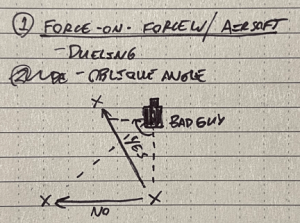 ① FORCE-ON-FORCE W/ AIRSOFT
- DUELING
② - OBLIQUE ANGLE
X
BAD GUY
YES
X X
NO